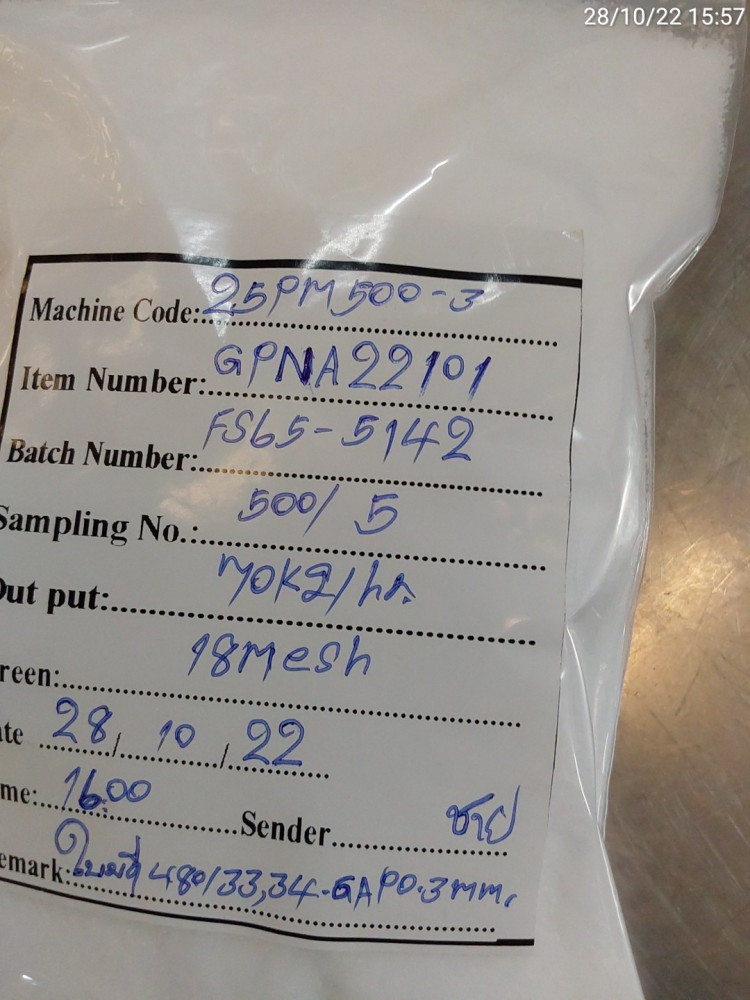 28/10/22 15:57
Machine Code: 25PM500-3
Item Number: GPNA22101
Batch Number: FS65-5142
Sampling No.: 500/5
Out put: 70Kg/hr.
reen: 18Mesh
ate 28/10/22
me: 16.00 Sender ชาย
emark: ใบมีด 480/33,34.GAP0.3mm.